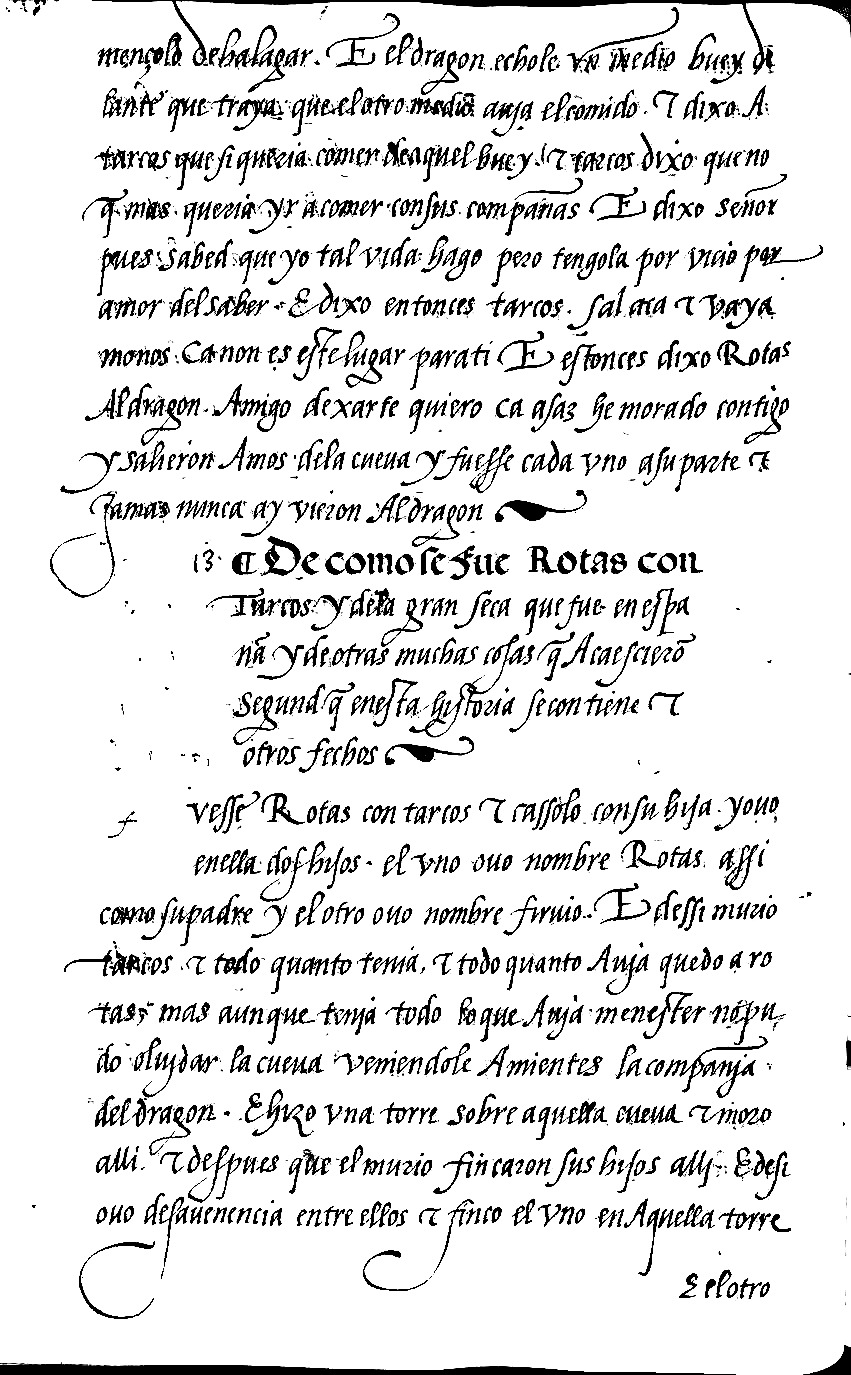 mençolo de halagar. E el dragon echole vn medio buey de
lante que traya que el otro medio auja el comido. τ dixo A
tarcos que si queria comer de aquel buey. τ tarcos dixo que no
q̃ mas queria yr a comer con sus compañas E dixo señor
pues sabed que yo tal vida hago pero tengola por vicio por
amor del saber. E dixo entonces tarcos. sal aca τ vaya
monos. Ca non es este lugar para ti E estonces dixo Rotas
Al dragon. Amigo dexarte quiero ca asaz he morado contigo
y salieron Amos dela cueua y fuesse cada vno a su parte τ
Jamas nunca ay vieron Al dragon
13 ¶ De como se fue Rotas con
Tarcos y dela gran seca que fue en espa
ña y de otras muchas cosas q̃ Acaescierõ
segund q̃ en esta historia se contiene τ
otros fechos
f vesse Rotas con tarcos τ cassolo con su hija. y ouo
en ella dos hijos. el vno ouo nombre Rotas assi
como su padre y el otro ouo nombre firuio. E dessi murio
tarcos τ todo quanto tenia, τ todo quanto Auja quedo a ro
tas, mas aunque tenja todo lo que Auja menester no pu
do olujdar la cueua veniendole Amientes la companja
del dragon. E hizo vna torre sobre aquella cueua τ moro
alli. τ despues que el murio fincaron sus hijos alli. E desi
ouo desauenencia entre ellos τ finco el vno en Aquella torre
E el otro